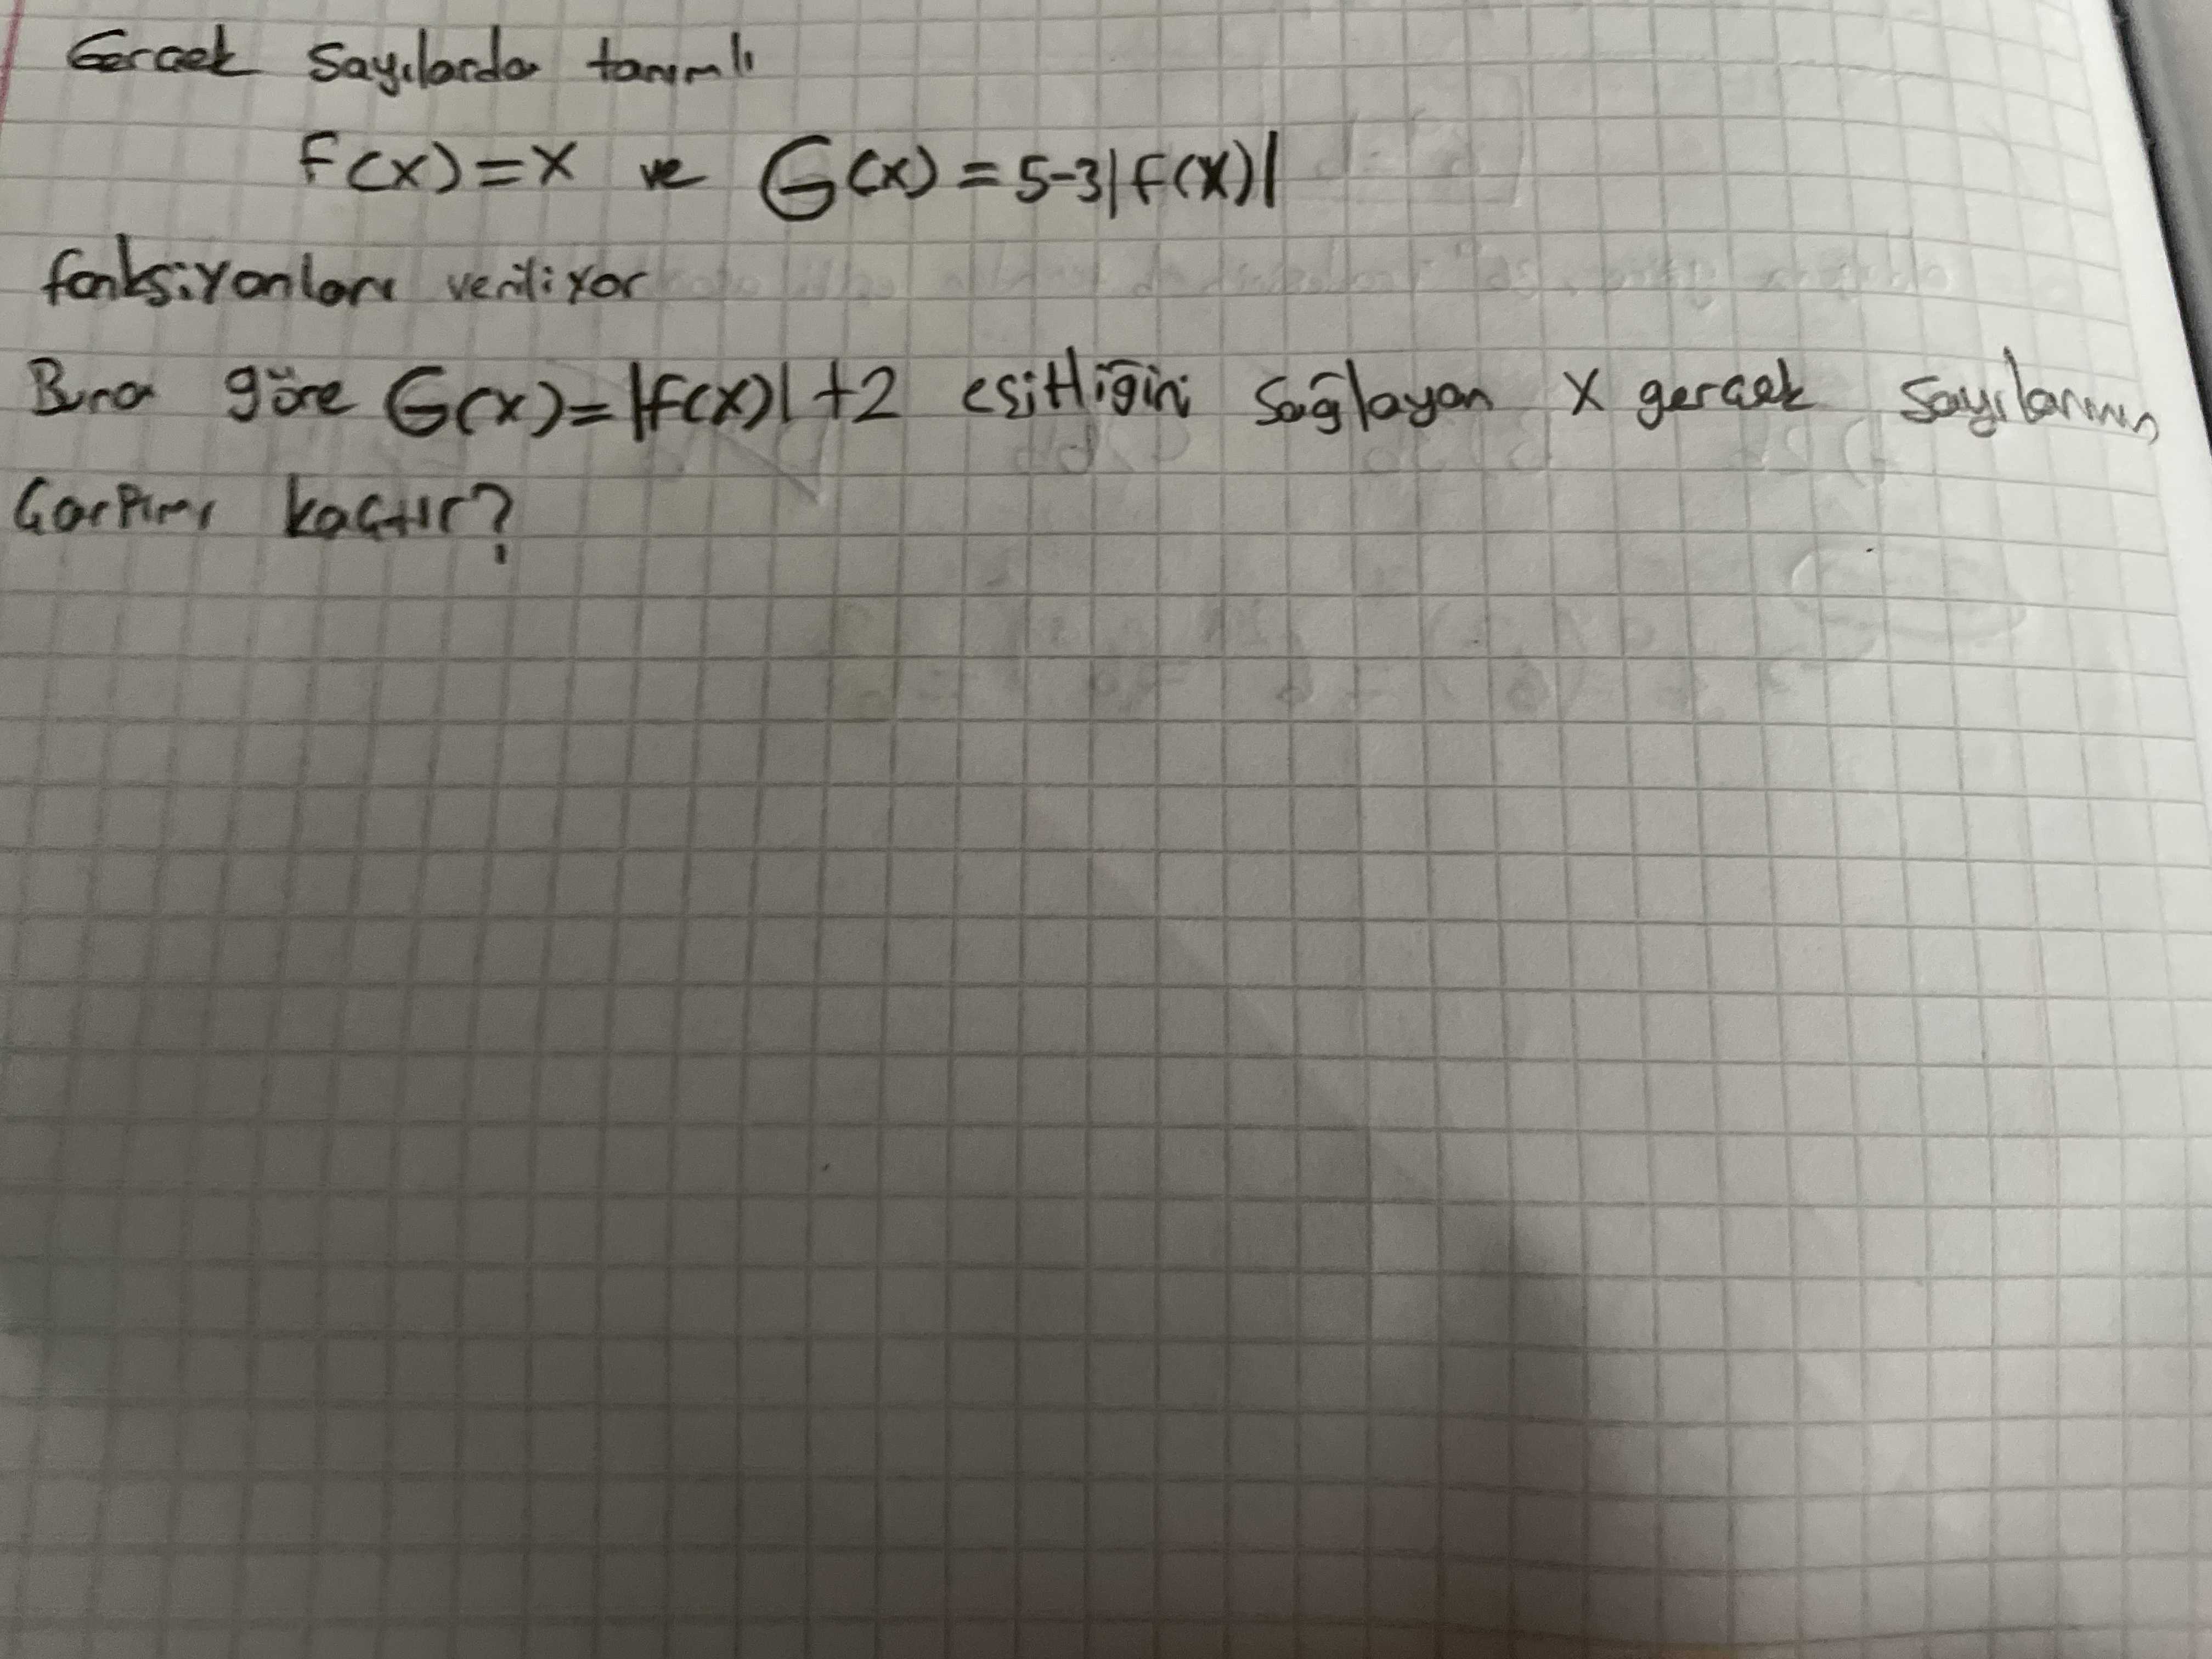 Gerçek sayılarda tanımlı
F(x)=x ve G(x)=5-3|F(x)|
fonksiyonları veriliyor
Buna göre G(x)=|f(x)|+2 eşitliğini sağlayan x gerçek sayılarının
Çarpımı kaçtır?